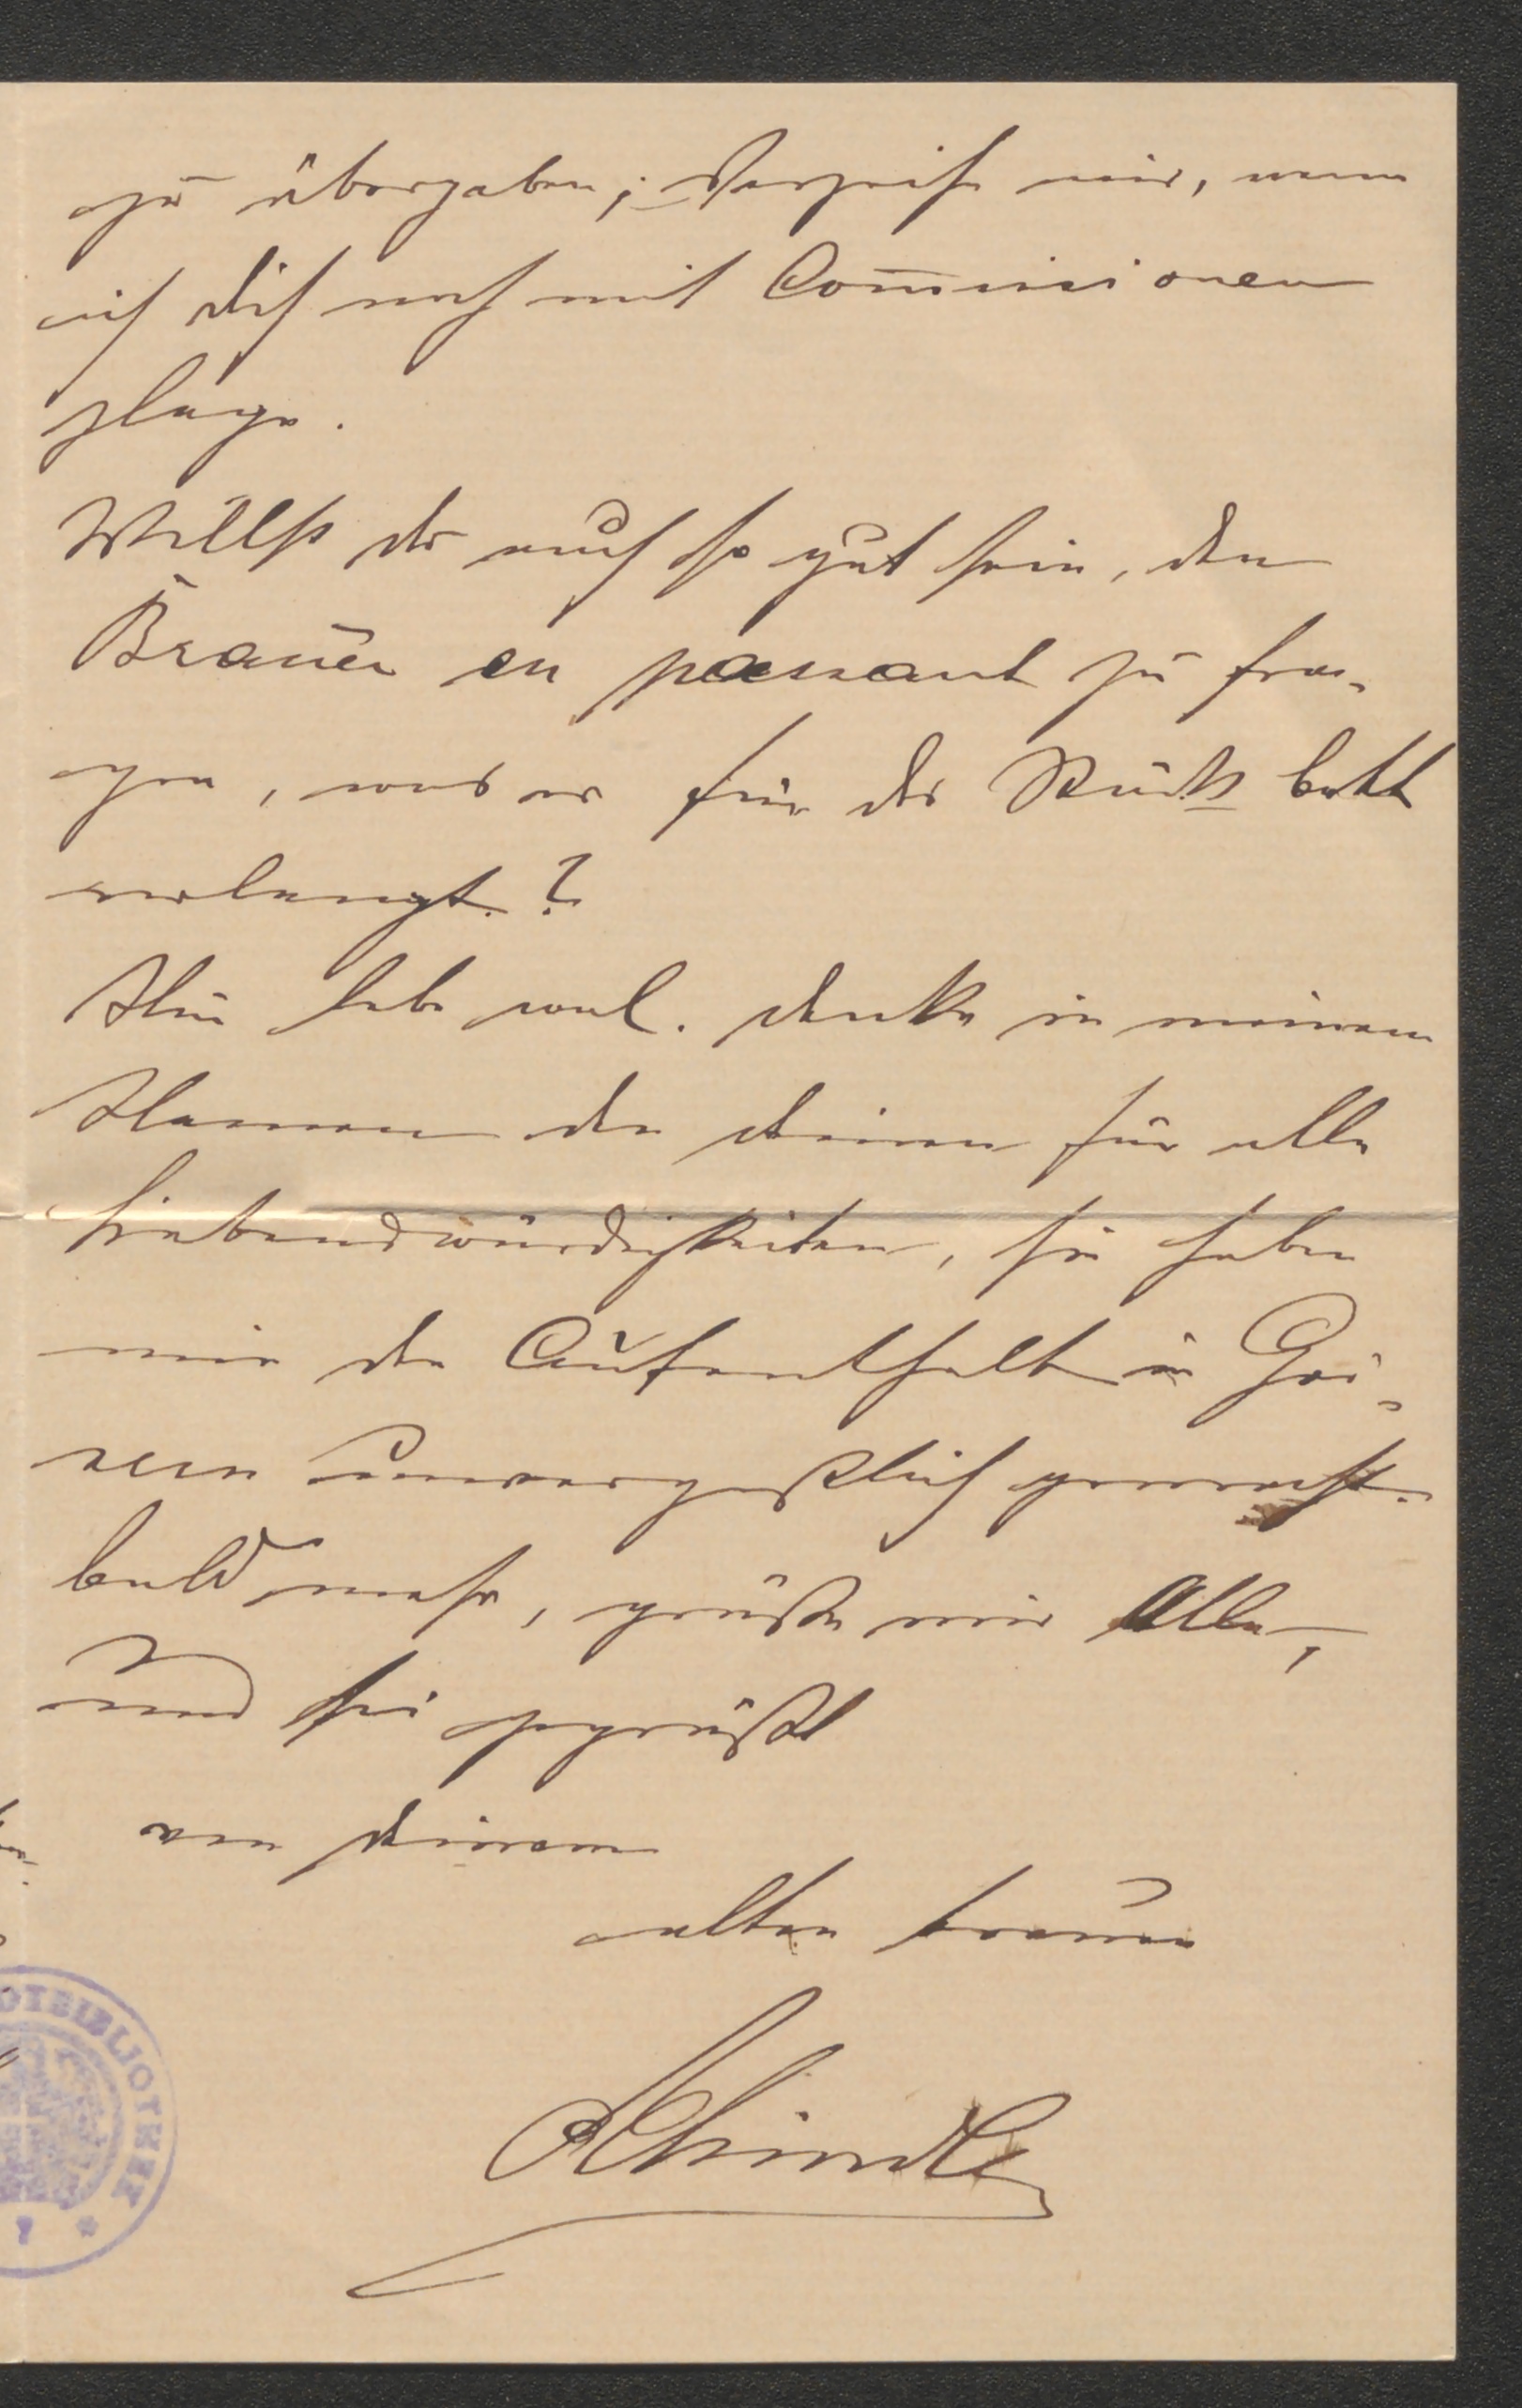 zu übergeben; Verzeihe mir, wenn
ich dich noch mit Com̅issionen
plage.
Willst du auch so gut sein, den
Brauer en passant zu fra-
gen, was er für das Stück
verlangt?
Nun lebe wol. danke in meinem
Namen den deinen für alle
Liebenswürdigkeiten, sie haben
mir den Aufenthalt in Goi-
sern unvergeßlich gemacht.
bald mehr, grüße mir Alle,
und sei gegrüßt
von deinem
alten treuen
Schindler
OTBIBLIOTHEK